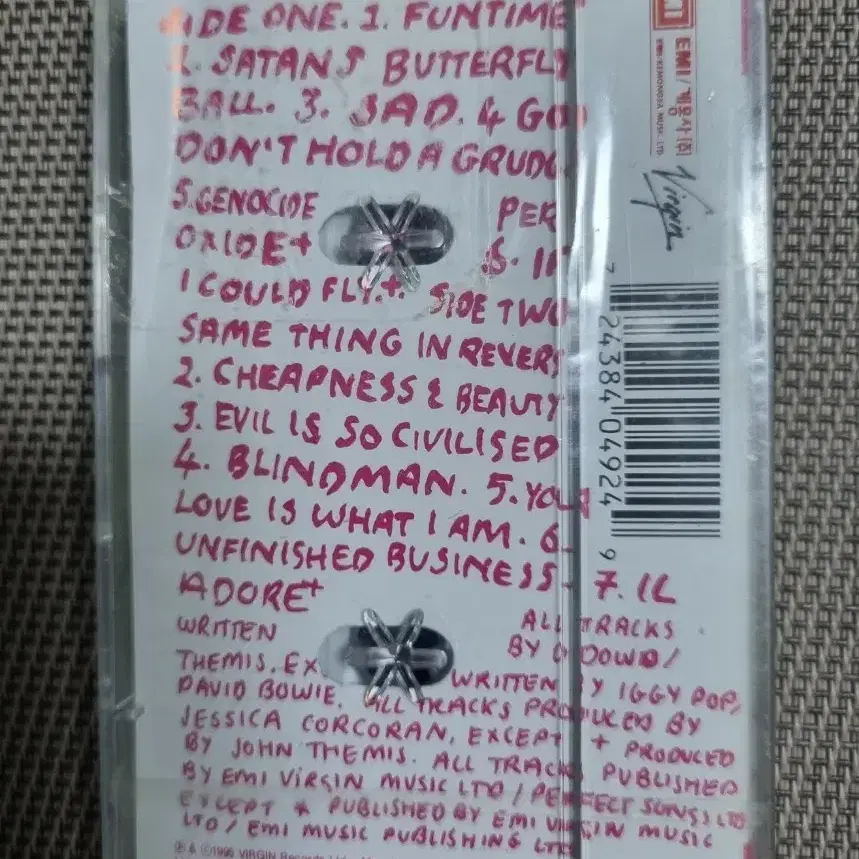 SIDE ONE. 1. FUNTIME
2. SATANS BUTTERFLY
BALL. 3. SAD. 4 GO
DON'T HOLD A GRUDG
5. GENOCIDE PER
OXIDE+ 6. IF
I COULD FLY.+. SIDE TWO
SAME THING IN REVERS
2. CHEAPNESS & BEAUTY
3. EVIL IS SO CIVILISED
4. BLINDMAN. 5. YOUR
LOVE IS WHAT I AM. 6.
UNFINISHED BUSINESS. 7. IL
ADORE+
WRITTEN ALL TRACKS
BY O DOWD/
THEMIS. EX WRITTEN BY IGGY POP,
DAVID BOWIE. ALL TRACKS PRODUCED BY
JESSICA CORCORAN, EXCEPT + PRODUCED
BY JOHN THEMIS. ALL TRACKS PUBLISHED
BY EMI VIRGIN MUSIC LTD / PERFECT SONGS LTD
EXCEPT * PUBLISHED BY EMI VIRGIN MUSIC
LTD / EMI MUSIC PUBLISHING LTD
℗ & ©1995 VIRGIN Records
EMI/계몽사(주)
EMI/KEMONGSA MUSIC LTD.
Virgin
7 24384 04924 9